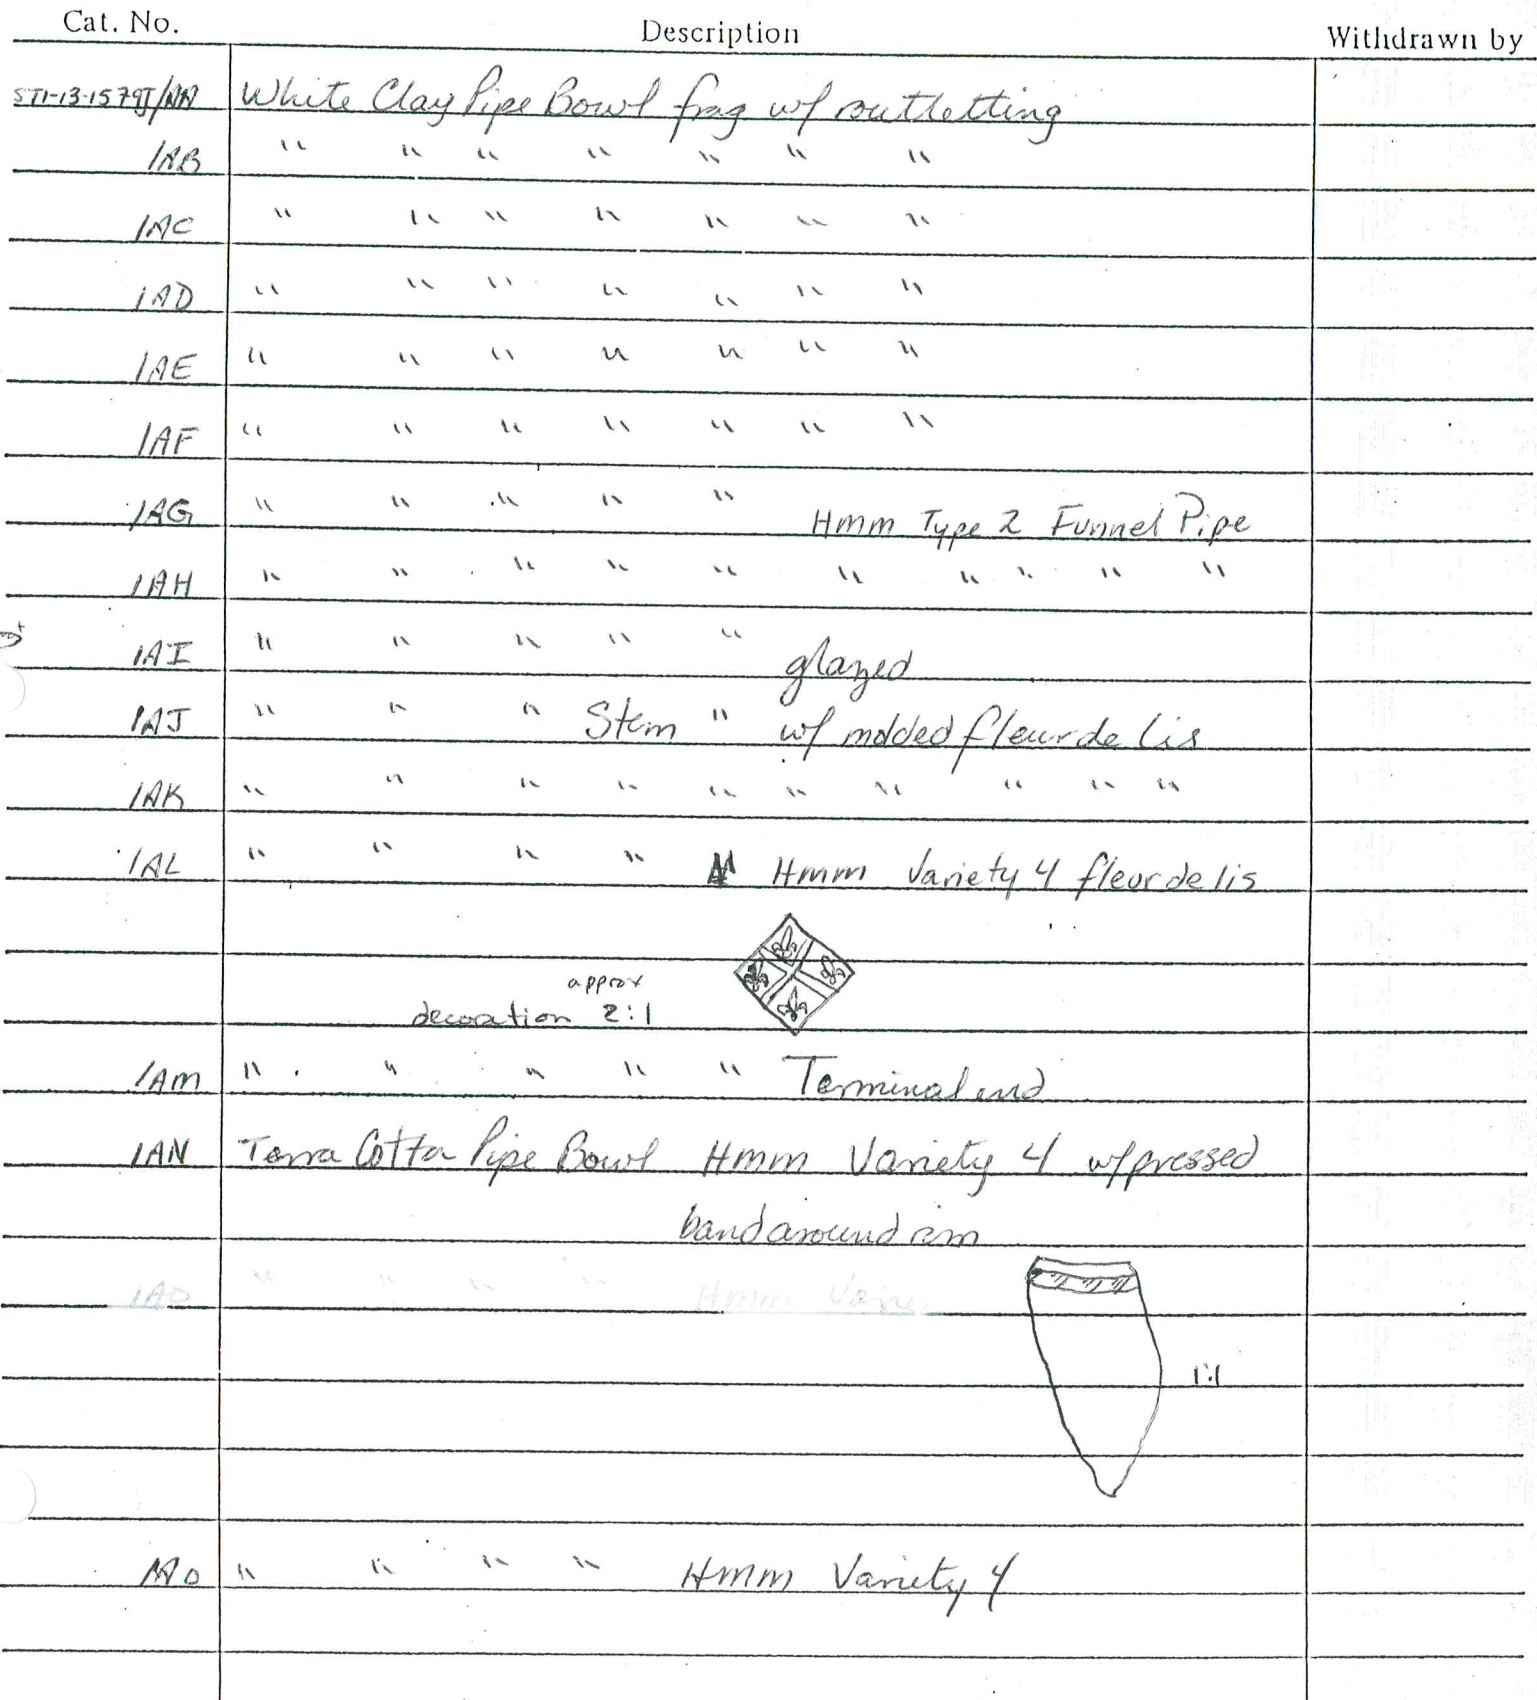 Cat. No. Description Withdrawn by
ST1-13-1579J/AA White Clay Pipe Bowl frag w/ routletting
/AB " " " " " " "
/AC " " " " " " "
/AD " " " " " " "
/AE " " " " " " "
/AF " " " " " " "
/AG " " " " " Hmm Type 2 Funnel Pipe
/AH " " " " " " " " " "
/AI " " " " " glazed
/AJ " " " Stem " w/ molded fleur de lis
/AK " " " " " " " " " "
/AL " " " " Hmm Variety 4 fleur de lis
approx
decoration 2:1
/AM " " " " " Terminal end
/AN Terra Cotta Pipe Bowl Hmm Variety 4 w/pressed
band around rim
/AO " " " " Hmm Varie
1:1
/AO " " " " Hmm Variety 4